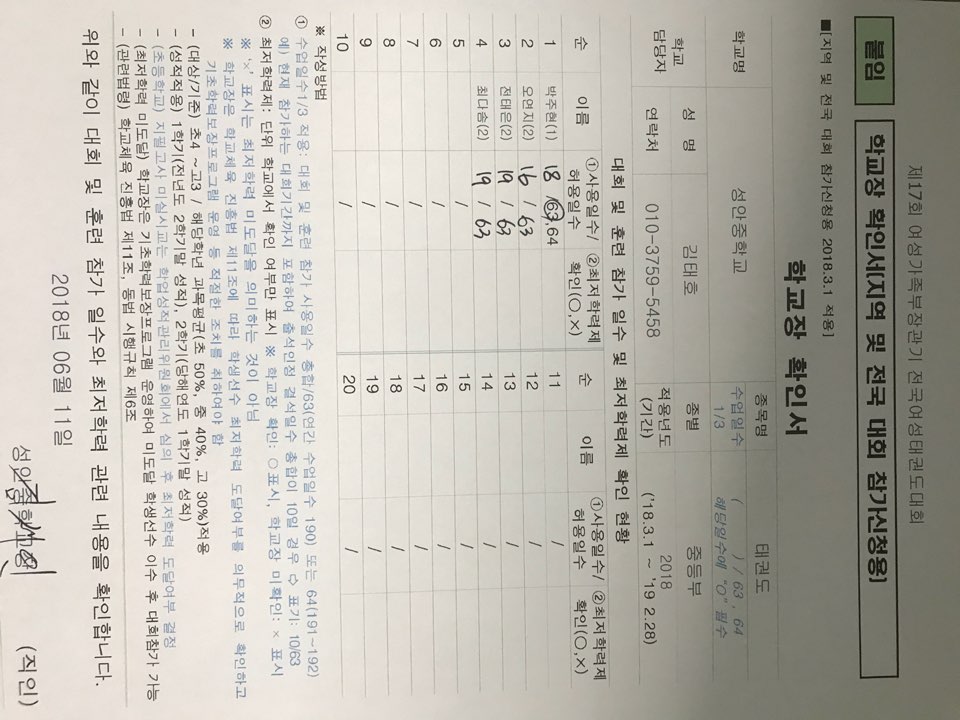 제17회 여성가족부장관기 전국여성태권도대회
붙임 학교장 확인서(지역 및 전국 대회 참가신청용)
■ [지역 및 전국 대회 참가신청용 2018.3.1 적용]
학교장 확인서
학교명 성안중학교 종목명 태권도
수업일수 1/3 ( / / 63 , 64 해당일수에 "O" 필수
학교 담당자 성 명 김태호 종별 중등부
연락처 010-3759-5458 적용년도 (기간) 2018 ('18.3.1 ~ '19 2.28)
대회 및 훈련 참가 일수 및 최저학력제 확인 현황
순 이름 ①사용일수/허용일수 ②최저학력제 확인(○,×) 순 이름 ①사용일수/허용일수 ②최저학력제 확인(○,×)
1 박주현(1) 18 / 63, 64 11 /
2 오연지(2) 16 / 63 12 /
3 전태은(2) 19 / 63 13 /
4 최다솜(2) 19 / 63 14 /
5 / 15 /
6 / 16 /
7 / 17 /
8 / 18 /
9 / 19 /
10 / 20 /
※ 작성방법
① 수업일수1/3 적용: 대회 및 훈련 참가 사용일수 총합/63(연간 수업일수 190) 또는 64(191~192)
예) 현재 참가하는 대회기간까지 포함하여 출석인정 결석일수 총합이 10일 경우 ⇨ 표기: 10/63
② 최저학력제: 단위 학교에서 확인 여부만 표시 ※ 학교장 확인: ○표시, 학교장 미확인: × 표시
※ '×' 표시는 최저학력 미도달을 의미하는 것이 아님
※ 학교장은 학교체육 진흥법 제11조에 따라 학생선수 최저학력 도달여부를 의무적으로 확인하고
기초학력보장프로그램 운영 등 적절한 조치를 취하여야 함
- (대상/기준) 초4 ~ 고3 / 해당학년 과목평균(초 50%, 중 40%, 고 30%)적용
- (성적적용) 1학기(전년도 2학기말 성적), 2학기(당해연도 1학기말 성적)
- (초등학교) 지필고사 미실시교는 학업성적관리위원회에서 심의 후 최저학력 도달여부 결정
- (최저학력 미도달) 학교장은 기초학력보장프로그램 운영하여 미도달 학생선수 이수 후 대회참가 가능
- (관련법령) 학교체육 진흥법 제11조, 동법 시행규칙 제6조
위와 같이 대회 및 훈련 참가 일수와 최저학력 관련 내용을 확인합니다.
2018년 06월 11일
(직인)